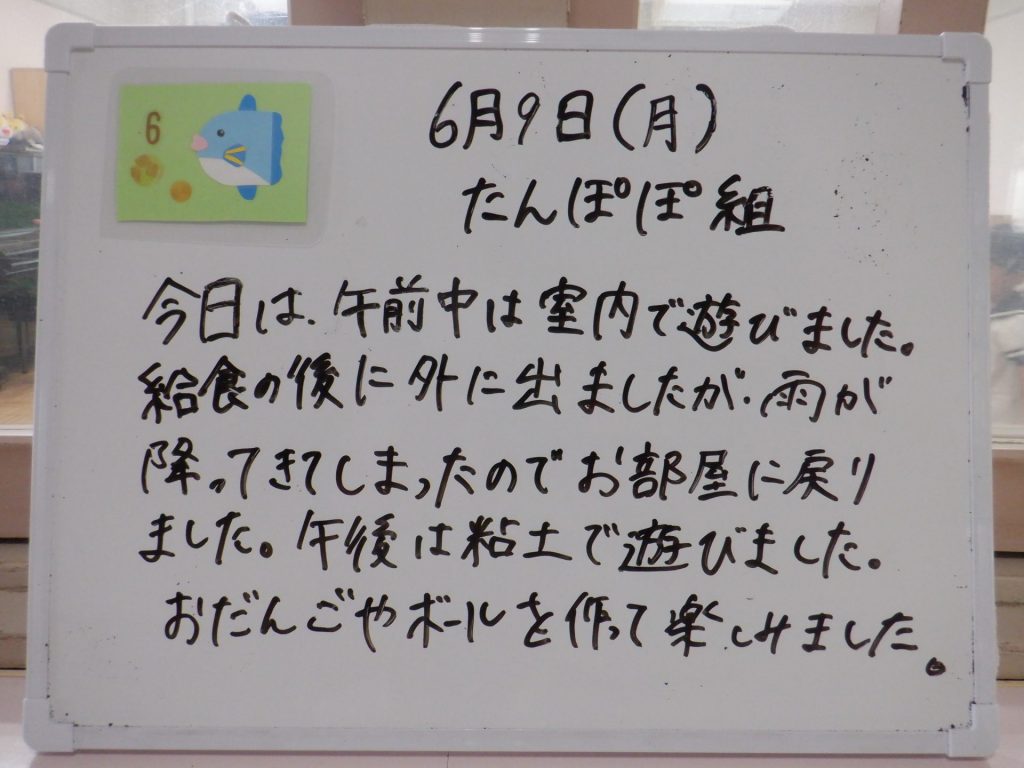 6
6月9日(月)
たんぽぽ組
今日は、午前中は室内で遊びました。
給食の後に外に出ましたが、雨が
降ってきてしまったのでお部屋に戻り
ました。午後は粘土で遊びました。
おだんごやボールを作って楽しみました。